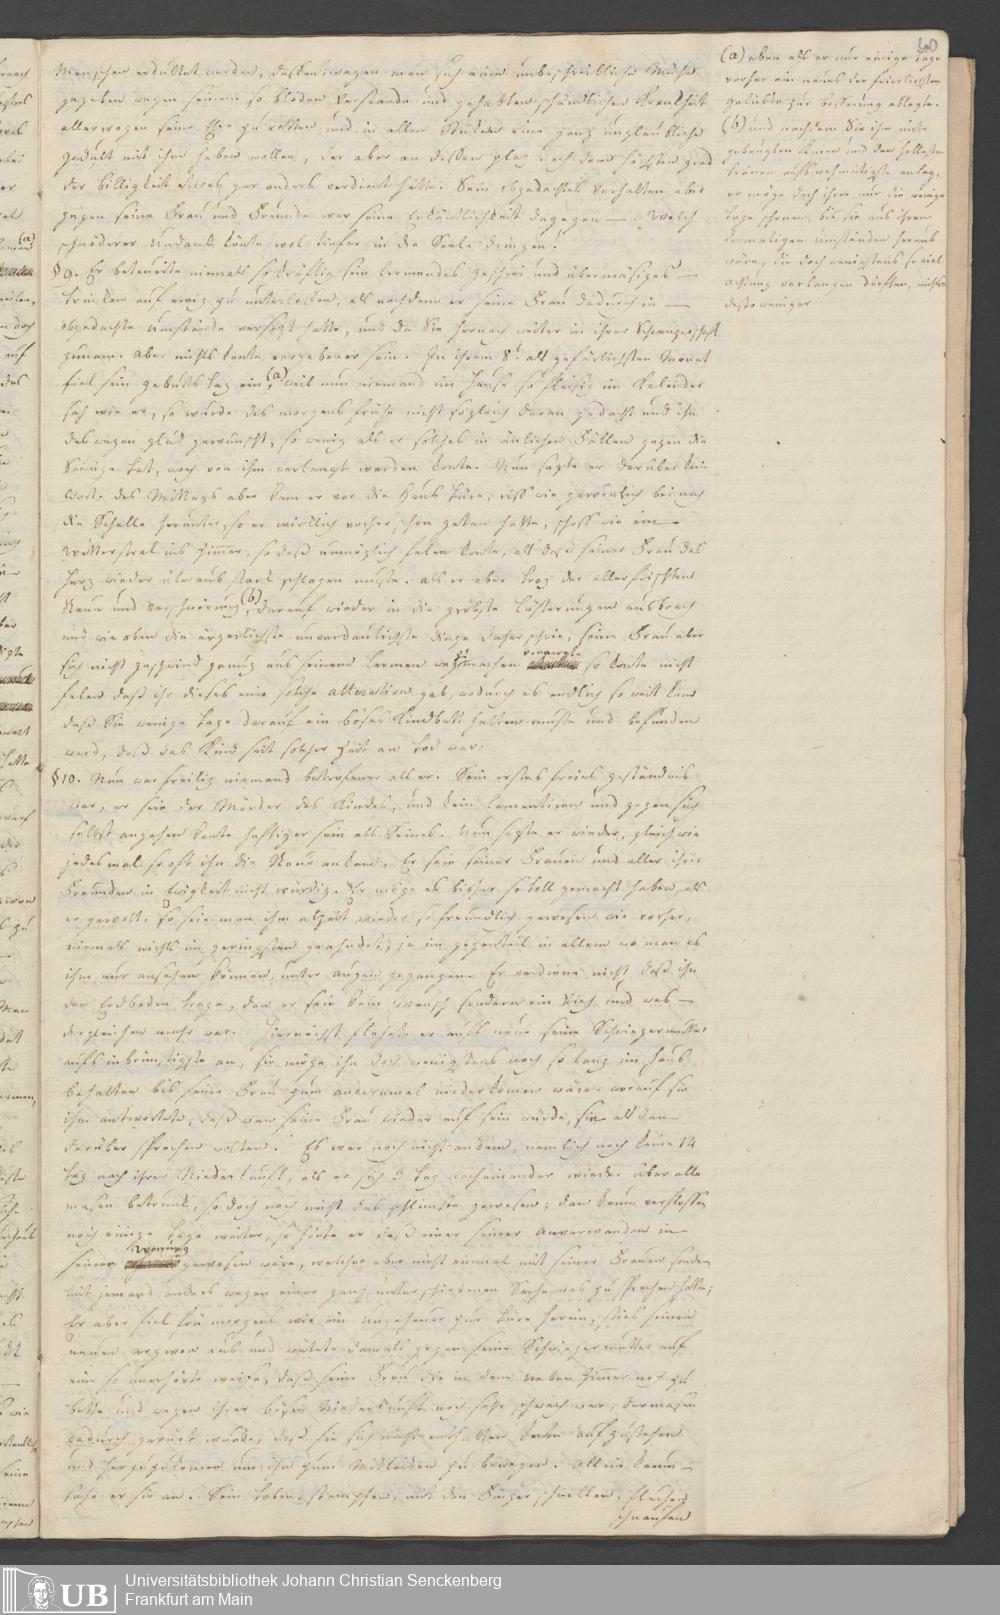 60
Menschen erdultet werden, dessentwegen man sich eine unbeschreibliche Mühe
gegeben wegen seinem so blöden Verstande und gehabten schändlichen Krankheit
allerwegen seine Ehre zu retten und in allen Stücken eine ganz unglaubliche
Gedult mit ihm haben wollen, der aber an dessen plaz nach dem höchsten grad
der billigkeit etwas gar anders verdient hätte. Sein obgedachtes Verhalten aber
gegen seine Frau und Freunde war seine Erkäntlichkeit dagegen — Welch
schnöderer Undank könte wol tiefer in die Seele dringen.
§ 9. Er beteuerte niemals so kräftig sein lermendes geschrei und übermäsiges
trinken auf ewig zu unterlassen, als nachdem er seine Frau dadurch in
obgedachte umstände versezt hatte, und da Sie hernach weiter in ihrer Schwangerschaft
zunam. Aber nichts konte vergebener sein. In ihrem 8t. als gefärlichsten Monat
fiel sein geburts tag ein (a), weil nun niemand im Hause so fleisig im Kalender
sah wie er, so wurde des morgens frühe nicht sogleich daran gedacht und ihm
deswegen glück gewünscht, so wenig als er solches in änlichen Fällen gegen die
Seinige tat, noch von ihm verlangt werden konte. Nun sagte er darüber kein
Wort. des Mittags aber kam er vor die Haus türe, riss wie gewönlich bei nah
die Schelle herunter, so er wirklich vorher schon getan hatte, schoss wie ein
Wetterstral ins Zimmer, so daß unmöglich felen konte, als daß seiner Frau das
Herz wieder überaus stark schlagen muste. als er aber troz der allerfrischten
Reue und Verschwörung (b) darauf wieder in die gröbste Lästerungen ausbrach
und wie oben die ärgerlichste unverdaulichste dinge daher schrie, seine Frau aber
sich nicht geschwind genug aus seinem Lermen weg zu machen vermogte so konte nicht
felen daß ihr dieses eine solche alteration gab, wodurch es endlich so weit kam
daß Sie wenige tage darauf ein böses Kindbett halten muste und befunden
ward, daß das Kind seit solcher Zeit an tod war.
§ 10. Nun war freilig niemand betrofener als er. Sein erstes freies geständnis
war, er seie der Mörder des Kindes, und kein lamentiren und gegen sich
selbst angehen konte heftiger sein als seines. Nun sagte er wieder, gleich wie
jedesmal so oft ihn die Reue ankam, Er seie seiner Frauen und aller ihrer
Freunden in Ewigkeit nicht würdig. Er möge es bisher so toll gemacht haben, als
er gewolt, so seie man ihm alzeit wieder so freundlich gewesen wie vorher,
niemals nichts im geringsten geahndet, ja im gegenteil in allem wo man es
ihm nur ansehen können, unter augen gegangen. Er verdiene nicht daß ihn
der Erdboden trage, den er seie kein Mensch sondern ein Vieh und was
dergleichen mehr war. Hiernächst flehete er aufs neue seine Schwiegermutter
aufs inbrünstigste an, sie möge ihn doch wenigstens noch so lang im Haus
behalten bis seine Frau zum andernmal niederkomen wäre. worauf sie
ihm antwortete, daß wan seine Frau wieder auf sein würde, sie als dan
darüber sprechen wolten. Es war noch nicht an dem, nemlich noch keine 14
tag nach ihrer Niederkunft, als er sich 3 tag nacheinander wieder über alle
masen betrank, so doch noch nicht das schlimste gewesen; dan kaum verflossen
noch einige tage weiter, so hörte er daß einer seiner Anverwanden in
seiner Wonung gewesen wäre, welcher aber nicht einmal mit seiner Frauen sondern
mit jemand anders wegen einer ganz unterschiedenen Sache was zu sprechen hatte;
Er aber fiel frü morgens wie ein ungeheuer zur türe herein, sties seinen
neuen argwon aus und wütete damals gegen seine Schwiegermutter auf
eine so unerhörte weise, daß seine Frau die in dem neben Zimmer noch zu
bette und wegen ihrer bösen Niederkunft noch sehr schwach war, dermasen
dadurch gerürt wurde, daß sie sich nicht enthalten konte aufzustehen
und herzuzukomen um ihn zum Mitleiden zu bewegen. Allein kaum
sahe er sie an. Sein toben, stampfen, mit den Finger schnellen, fluchen
schnaufen
(a) eben als er nur einige tage
vorher ein neues der feierlichsten
gelübde zur besserung ablegte.
(b) und nachdem Sie ihn mit
gebeugten Knien und den hellesten
tränen aufs wehmütigste anlag,
er möge doch ihrer nur die wenige
tage schonen, bis sie aus ihren
dermaligen umständen heraus
wäre, die doch wenigstens so viel
achtung verlangen dörften, nichts
destoweniger
UB
Universitätsbibliothek Johann Christian Senckenberg
Frankfurt am Main